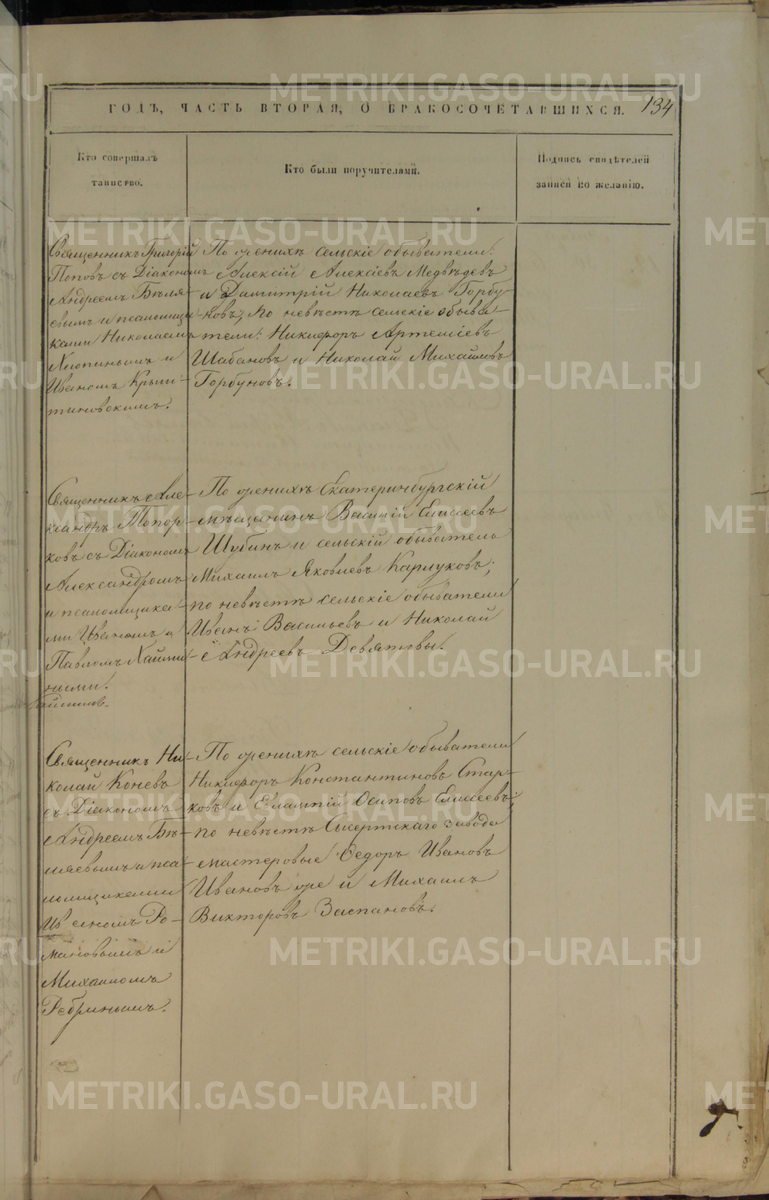 134
ГОДЪ, ЧАСТЬ ВТОРАЯ, О БРАКОСОЧЕТАВШИХСЯ.
Кто совершалъ
таинство.
Кто были поручителями.
Подпись свидѣтелей
записи по желанію.
Священникъ Григорій
Поповъ съ Діакономъ
Андреемъ Бѣля-
евымъ и псаломщи-
ками Николаемъ
и
Иваномъ
По женихѣ сельскіе обыватели:
Алексій Алексіевъ Медвѣдевъ
и Димитрій Николаевъ Горбу-
новъ; по невѣстѣ сельскіе обыва-
тели: Никифоръ Артеміевъ
Шабановъ и Николай Михайловъ
Горбуновъ.
Священникъ Але-
ксандръ Топор-
ковъ съ Діакономъ
Александромъ
и псаломщика-
ми Иваномъ и
Павломъ
По женихѣ Екатеринбургскій
мѣщанинъ Василій Елисеевъ
Шубинъ и сельскій обыватель
Михаилъ Яковлевъ Карлуковъ;
по невѣстѣ сельскіе обыватели
Иванъ Васильевъ и Николай
Андреевъ Девятовы.
Священникъ Ни-
колай Коневъ
съ Діакономъ
Андреемъ Бѣ-
ляевымъ и пса-
ломщиками
Иваномъ Ро-
мановымъ и
Михаиломъ
Ребринымъ.
По женихѣ сельскіе обыватели
Никифоръ Константиновъ Стар-
ковъ и Евлампій Осиповъ Елисеевъ;
по невѣстѣ Сысертскаго завода
мастеровые Ѳедоръ Ивановъ
Ивановъ же и Михаилъ
Викторовъ Заспановъ.
METRIKI.GASO-URAL.RU